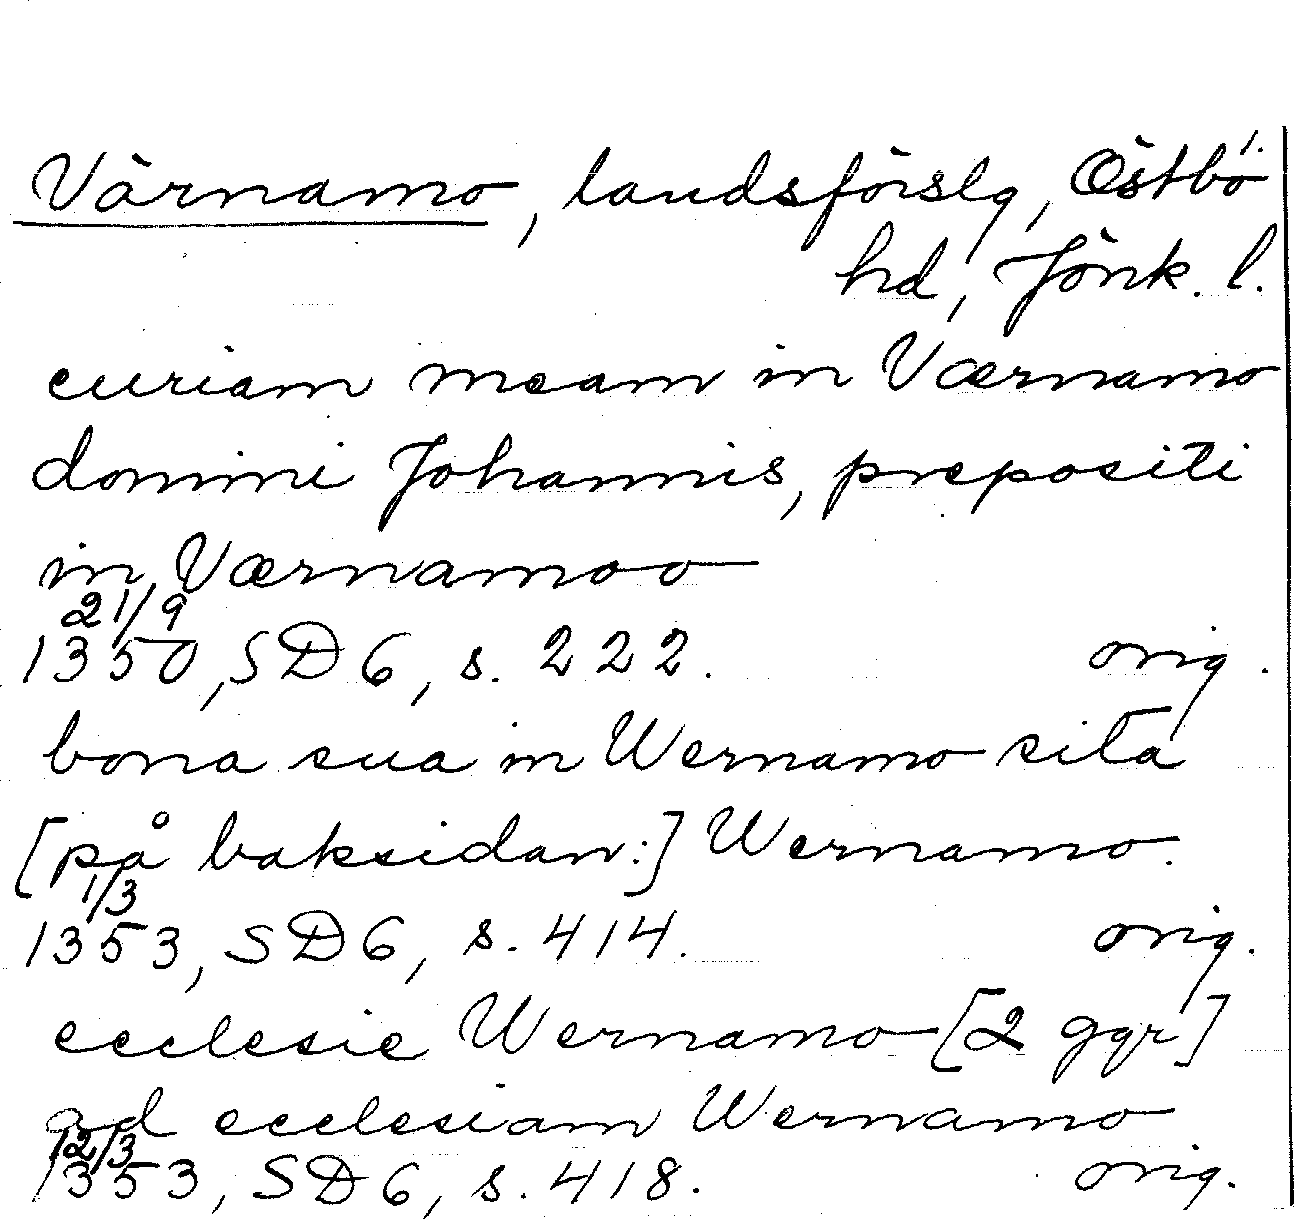 1.
Värnamo, landsförslg, Östbo
hd, Jönk. l.
curiam meam in Værnamo
domini Johannis, prepositi
in Værnamoo
21/9
1350, SD 6, s. 222. orig.
bona sua in Wernamo sita
[på baksidan:] Wernamo.
1/3
1353, SD 6, s. 414. orig.
ecclesie Wernamo [2 ggr]
ad ecclesiam Wernamo
12/3
1353, SD 6, s. 418. orig.